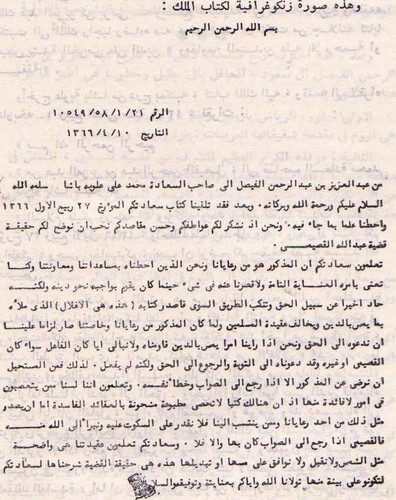 وهذه صورة زنكوغرافية لكتاب الملك :
بسم الله الرحمن الرحيم
الرقم ١٠٥٤٩/٥٨/١/٢١
التاريخ ١٣٦٦/٤/١٠
من عبد العزيز بن عبد الرحمن الفيصل الى صاحب السعادة محمد على علوبه باشا سلمه الله
السلام عليكم ورحمة الله وبركاته . وبعد فقد تلقينا كتاب سعادتكم المؤرخ ٢٧ ربيع الاول ١٣٦٦
واحطنا علما بما جاء فيه . ونحن اذ نشكر لكم عواطفكم وحسن مقاصدكم نحب ان نوضح لكم حقيقة
قضية عبد الله القصيمى .
تعلمون سعادتكم ان المذكور هو من رعايانا ونحن الذين احطناه بمساعداتنا ومعاونتنا وكنا
نعنى بأمره العناية التامة ولا قصرنا عنه فى شىء حينما كان يقوم بواجبه نحو دينه ولكنه
حاد اخيرا عن سبيل الحق وتنكب الطريق السوى فأصدر كتابه (هذه هى الاغلال) الذى ملأه
بما يمس بالدين ويخالف عقيدة المسلمين ولما كان المذكور من رعايانا وخاصتنا صار لزاما علينا
ان ندعوه الى الحق ونحن اذا راينا امرا يمس بالدين قاومناه ولا نبالى ايا كان الفاعل سواء كان
القصيمى او غيره وقد دعوناه الى التوبة والرجوع الى الحق ولكنه لم يفعل . لذلك فمن المستحيل
ان نرضى عن المذكور الا اذا رجع الى الصواب وخطأ نفسه . وتعلمون اننا لسنا ممن يتعصبون
فى امور لا فائدة منها اذ ان هنالك كتبا لا تحصى مطبوعة مشحونة بالعقائد الفاسدة اما ان يصدر
مثل ذلك من احد رعايانا وممن ينتسب الينا فلا نقدر على السكوت عليه ونبرأ الى الله منه
فالقصيمى اذا رجع الى الصواب كان بها والا فلا . وسعادتكم تعلمون عقيدتنا هى واضحة
مثل الشمس ولا نقبل ولا نوافق على مسها او تبديلها هذه هى حقيقة القضية شرحناها لسعادتكم
لتكونوا على بينة منها تولانا الله واياكم بعنايته وتوفيقه والسلام